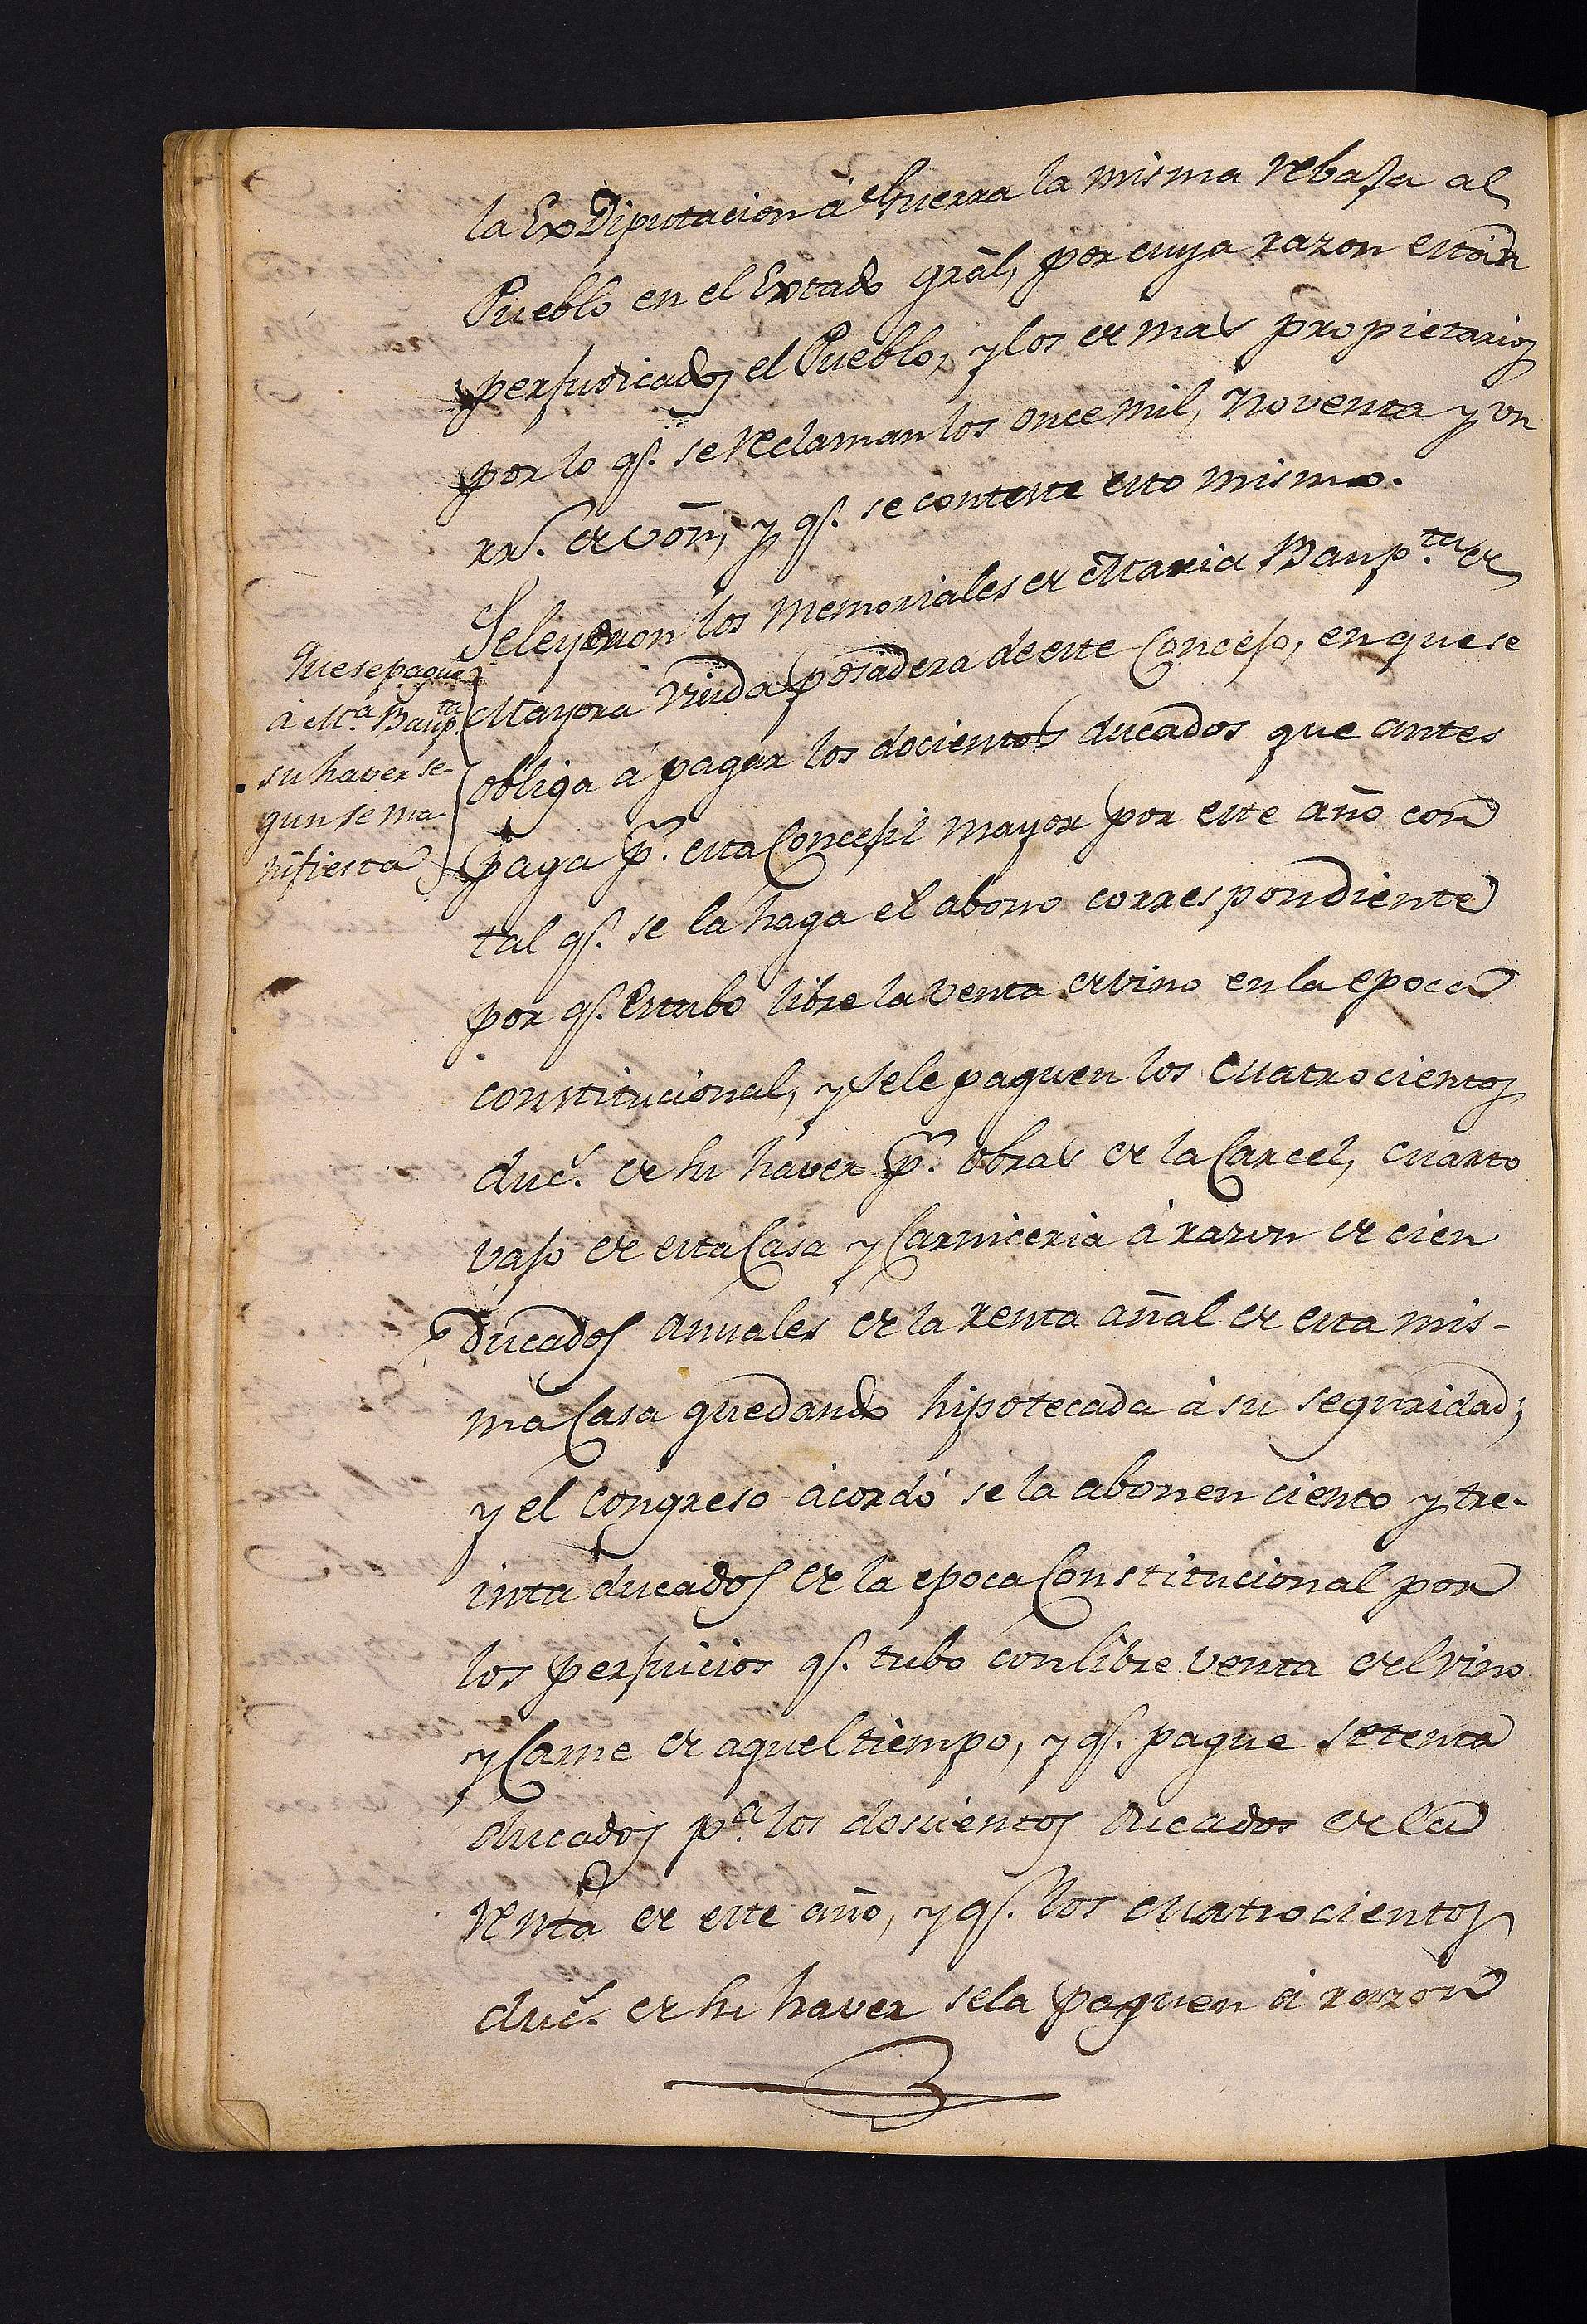 la Ex Diputacion á Guerra la misma rebaja al
Pueblo en el Estado grãl, por cuya razon están
perjudicados el Pueblo, y los de mas propietarios
por lo q.e se reclaman los once mil, noventa y un
rr.s de von, y q.e se conteste esto mismo.
Se leyeron los memoriales de Maria Baup.ta de
Mayora Viuda posadera de este Concejo, en que se
obliga á pagar los docientos ducados que antes
paga p.r esta Concejil mayor por este año con
tal q.e se la haga el abono correspondiente
por q.e estubo libre la venta de vino en la epoca
constitucional, y se le paguen los cuatrocientos
duc.s de su haver p.r obras de la Carcel, cuarto
vajo de esta Casa y Carniceria á razon de cien
Ducados anuales de la renta añal de esta mis-
ma Casa quedando hipotecada á su seguridad;
y el congreso acordó se la abonen ciento y tre-
inta ducados de la epoca Constitucional por
los perjuicios q.e tubo con libre venta del vino
y Carne de aquel tiempo, y q.e pague setenta
ducados p.a los doscientos ducados de la
renta de este año, y q.e los cuatrocientos
duc.s de su haver se la paguen á razon
Que se pague
á M.a Baup.ta
su haver se-
gun se ma-
nifiesta